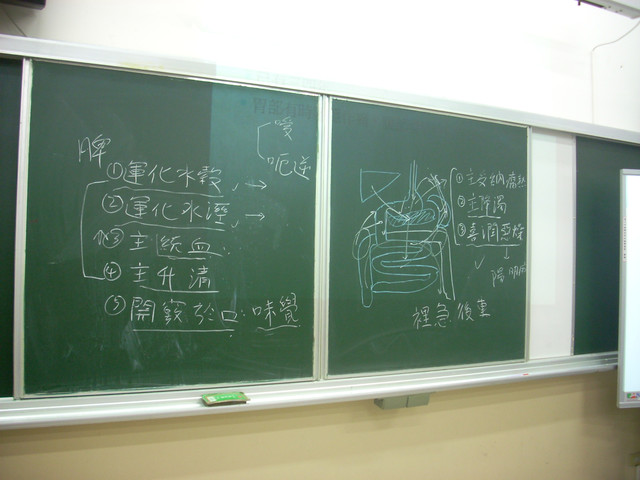 脾
①運化水穀
②運化水溼
③主統血
④主升清
⑤開竅於口:味覺
噯
呃逆
①主受納腐熟
②主降濁
③喜潤惡燥
陽明
裡急後重